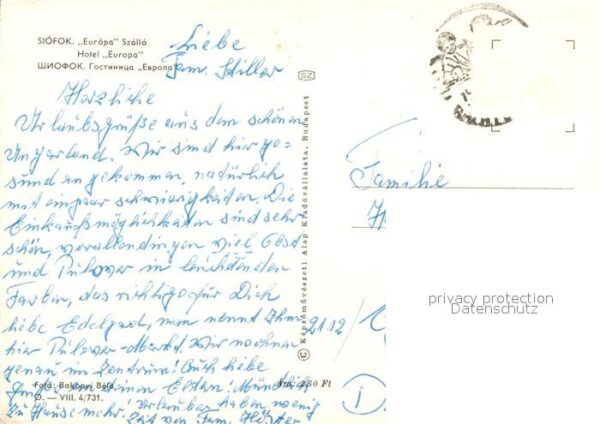 SIÓFOK. „Európa" Szálló
Hotel „Europa"
ШИОФОК. Гостиница „Европа"
Liebe
Fam. Hiller
Herzliche
Urlaubsgrüße aus dem schönen
Ungarland. Wir sind hier ge-
sund angekommen, natürlich
mit ein paar schwierigkeiten. Die
Einkaufsmöglichkeiten sind sehr
schön, vor allen dingen viel Obst
und Pullover in leuchtenden
Farben, das richtige für Dich
liebe Edelgard, man nennt Ihn
hier Pullover-Markt. Wir wohnen
genau im Zentrum! Auch liebe
Grüße von deinen Eltern! Mündlich
zu Hause mehr. Urlauber haben wenig
Zeit von Fam.
Fotó: Bakonyi Béla
Ára: 2,60 Ft
O. — VIII. 4/731.
SZ
© Képzőművészeti Alap Kiadóvállalata, Budapest
Familie
H
2112/
privacy protection
Datenschutz